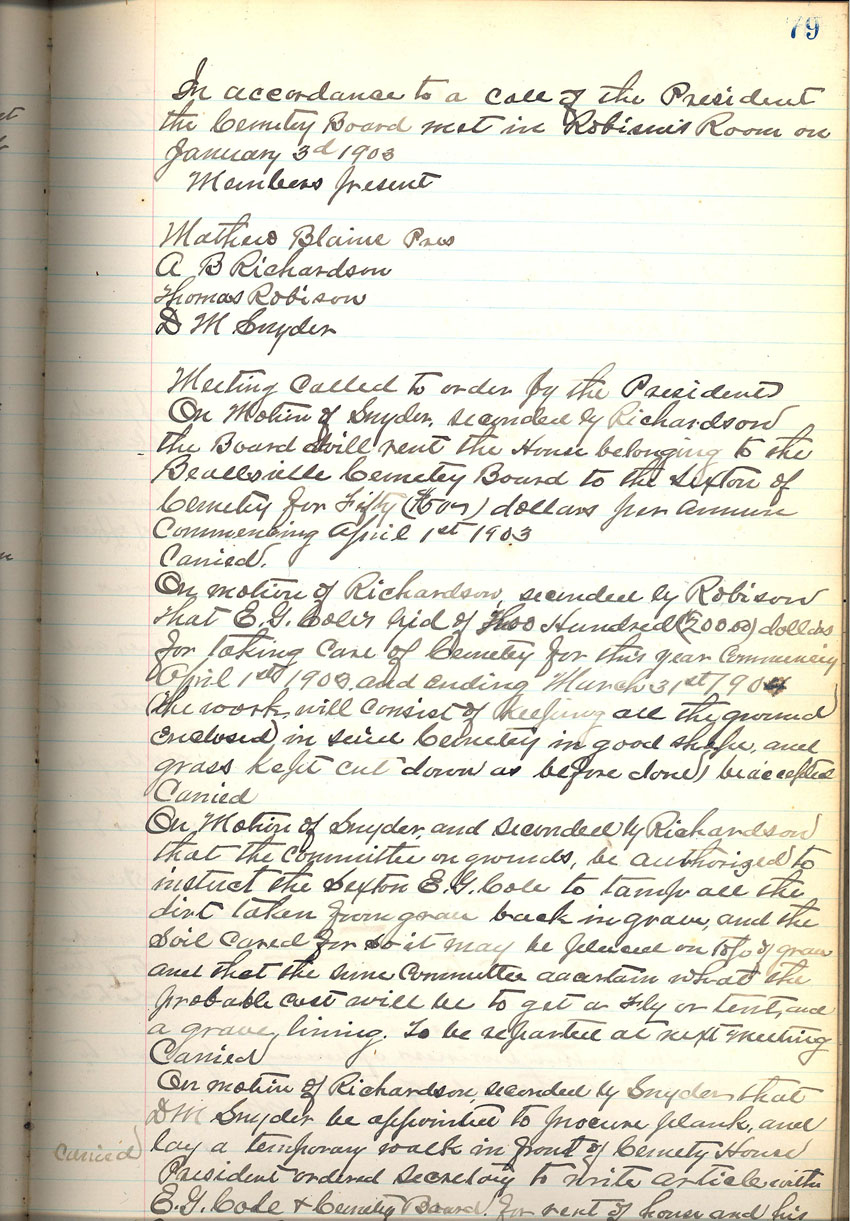 79
In accordance to a call of the President
the Cemetry Board met in Robison's Room on
January 3d 1903
Members present
Mathew Blaine Pres
A B Richardson
Thomas Robison
D M Snyder
Meeting called to order by the President
On Motion of Snyder, seconded by Richardson
the Board will rent the House belonging to the
Beallsville Cemetry Board to the Sexton of
Cemetry for Fifty ($50) dollars per annum
Commencing April 1st 1903
Carried.
On motion of Richardson, seconded by Robison
that E.G. Cole's bid of Two Hundred (200.00) dollars
for taking care of Cemetry for this year Commencing
April 1st 1903, and ending March 31st 1904
(the work, will consist of keeping all the ground
enclosed in said Cemetry in good shape, and
grass kept cut down as before done) be accepted
Carried
On Motion of Snyder, and seconded by Richardson
that the Committee on grounds, be authorized to
instruct the Sexton E.G. Cole to tamp all the
dirt taken from grave back in grave, and the
Soil cared for so it may be placed on top of grave
and that the same Committee ascertain what the
probable cost will be to get a Fly or tent, and
a grave lining. To be reported at next meeting
Carried
On motion of Richardson, seconded by Snyder that
D M Snyder be appointed to procure plank, and
lay a temporary walk in front of Cemety House
Carried
President ordered Secretary to write article with
E.G. Cole & Cemetry Board. for rent of house and his